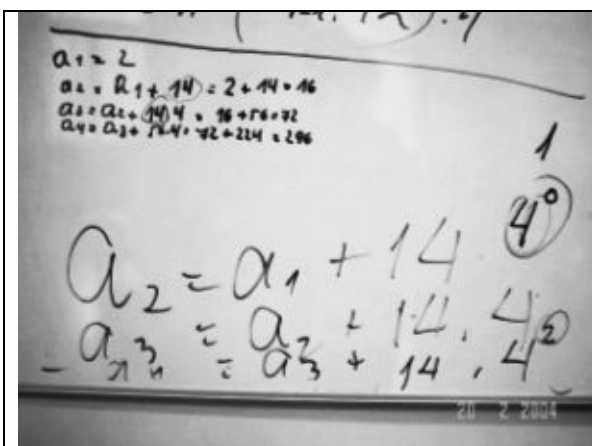 a₁ = 2
a₂ = a₁ + 14 = 2 + 14 = 16
a₃ = a₂ + 14 4 = 16 + 56 = 72
a₄ = a₃ + 56 4 = 72 + 224 = 296
1
4⁰
a₂ = a₁ + 14
a₃ = a₂ + 14 . 4
= a₃ + 14 . 4²
20 2 2004